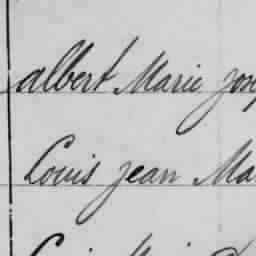 albert Marie Jose
Louis Jean Ma